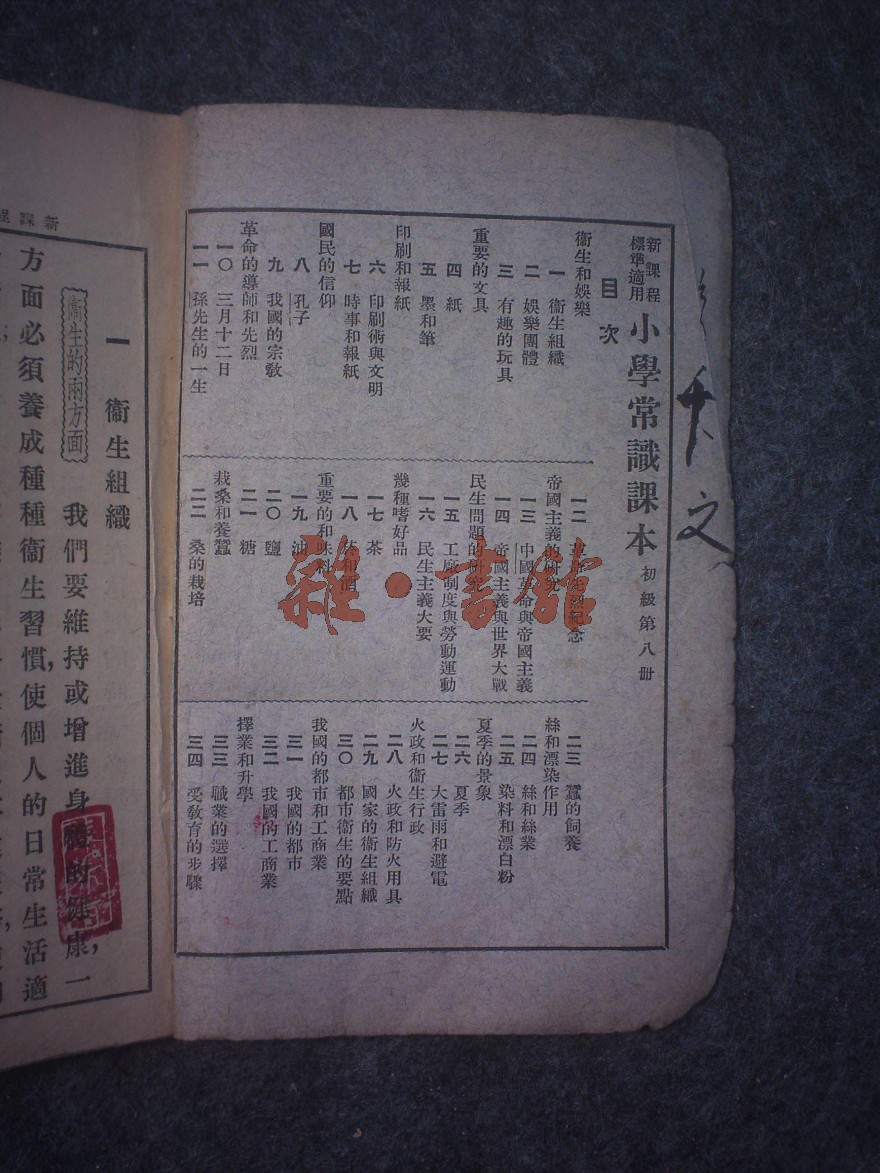 新課程
標準適用
小學常識課本
初級第八册
目次
衞生和娛樂
一 衞生組織
二 娛樂團體
三 有趣的玩具
重要的文具
四 紙
五 墨和筆
印刷和報紙
六 印刷術與文明
七 時事和報紙
國民的信仰
八 孔子
九 我國的宗敎
革命的導師和先烈
一〇 三月十二日
一一 孫先生的一生
一二 革命先烈紀念
帝國主義的研究
一三 中國革命與帝國主義
一四 帝國主義與世界大戰
民生問題的研究
一五 工廠制度與勞動運動
一六 民生主義大要
幾種嗜好品
一七 茶
一八 菸和酒
重要的和味料
一九 油
二〇 鹽
二一 糖
栽桑和養蠶
二二 桑的栽培
二三 蠶的飼養
絲和漂染作用
二四 絲和絲業
二五 染料和漂白粉
夏季的景象
二六 夏季
二七 大雷雨和避電
火政和衞生行政
二八 火政和防火用具
二九 國家的衞生組織
三〇 都市衞生的要點
我國的都市和工商業
三一 我國的都市
三二 我國的工商業
擇業和升學
三三 職業的選擇
三四 受敎育的步驟
新課程
一 衞生組織
衞生的兩方面
我們要維持或增進身體的健康，一
方面必須養成種種衞生習慣，使個人的日常生活適
雜·書館
文